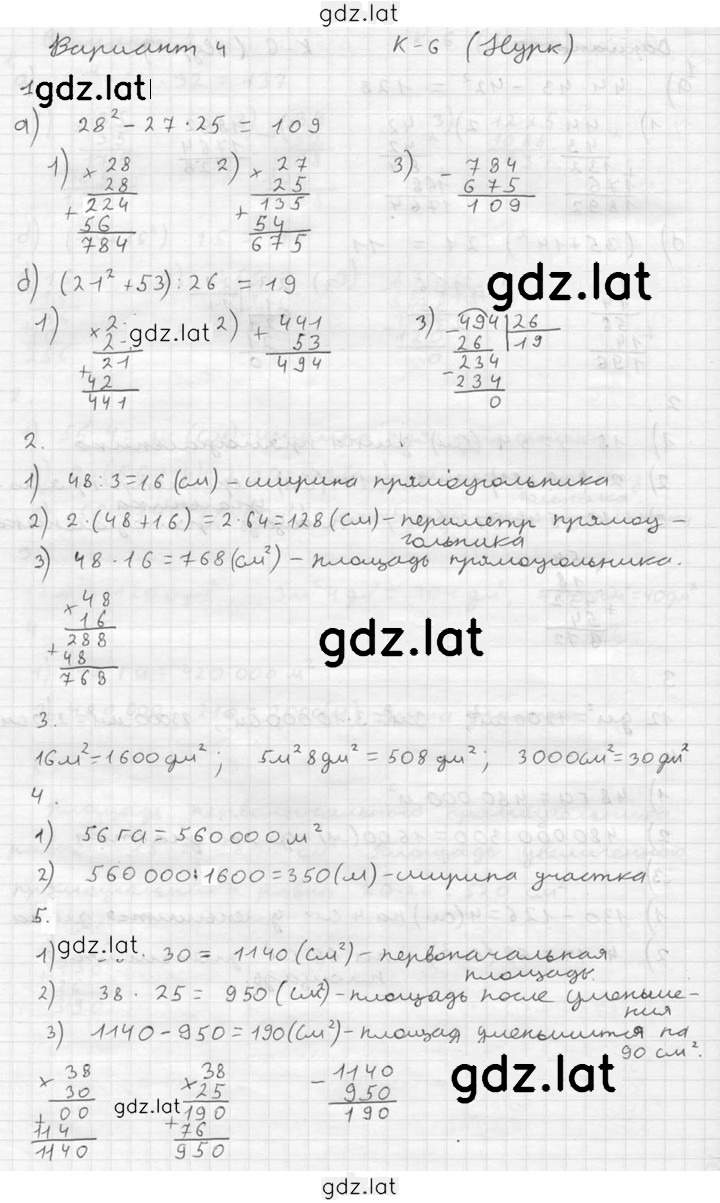 gdz.lat
Вариант 4 К-6 (Нурк)
1. gdz.lat
а) 28² - 27 · 25 = 109
1) × 28 2) × 27 3) - 784
28 25 675
+ 224 + 135 109
56 54
784 675
б) (21² + 53) : 26 = 19
gdz.lat
1) × 2 gdz.lat 2) + 441 3) - 494 | 26
2 53 26 19
+ 21 494 - 234
42 234
441 0
2.
1) 48 : 3 = 16 (см) - ширина прямоугольника
2) 2 · (48 + 16) = 2 · 64 = 128 (см) - периметр прямоу-
гольника
3) 48 · 16 = 768 (см²) - площадь прямоугольника.
× 48
16
+ 288
48
768
gdz.lat
3.
16 м² = 1600 дм² ; 5 м² 8 дм² = 508 дм² ; 3000 см² = 30 дм²
4.
1) 56 га = 560000 м²
2) 560 000 : 1600 = 350 (м) - ширина участка
5.
1) gdz.lat · 30 = 1140 (см²) - первоначальная
площадь.
2) 38 · 25 = 950 (см²) - площадь после уменьше-
ния
3) 1140 - 950 = 190 (см²) - площад уменьшится на
90 см².
× 38 × 38 - 1140
30 25 950
+ 00 gdz.lat + 190 190
114 76
1140 950
gdz.lat
gdz.lat